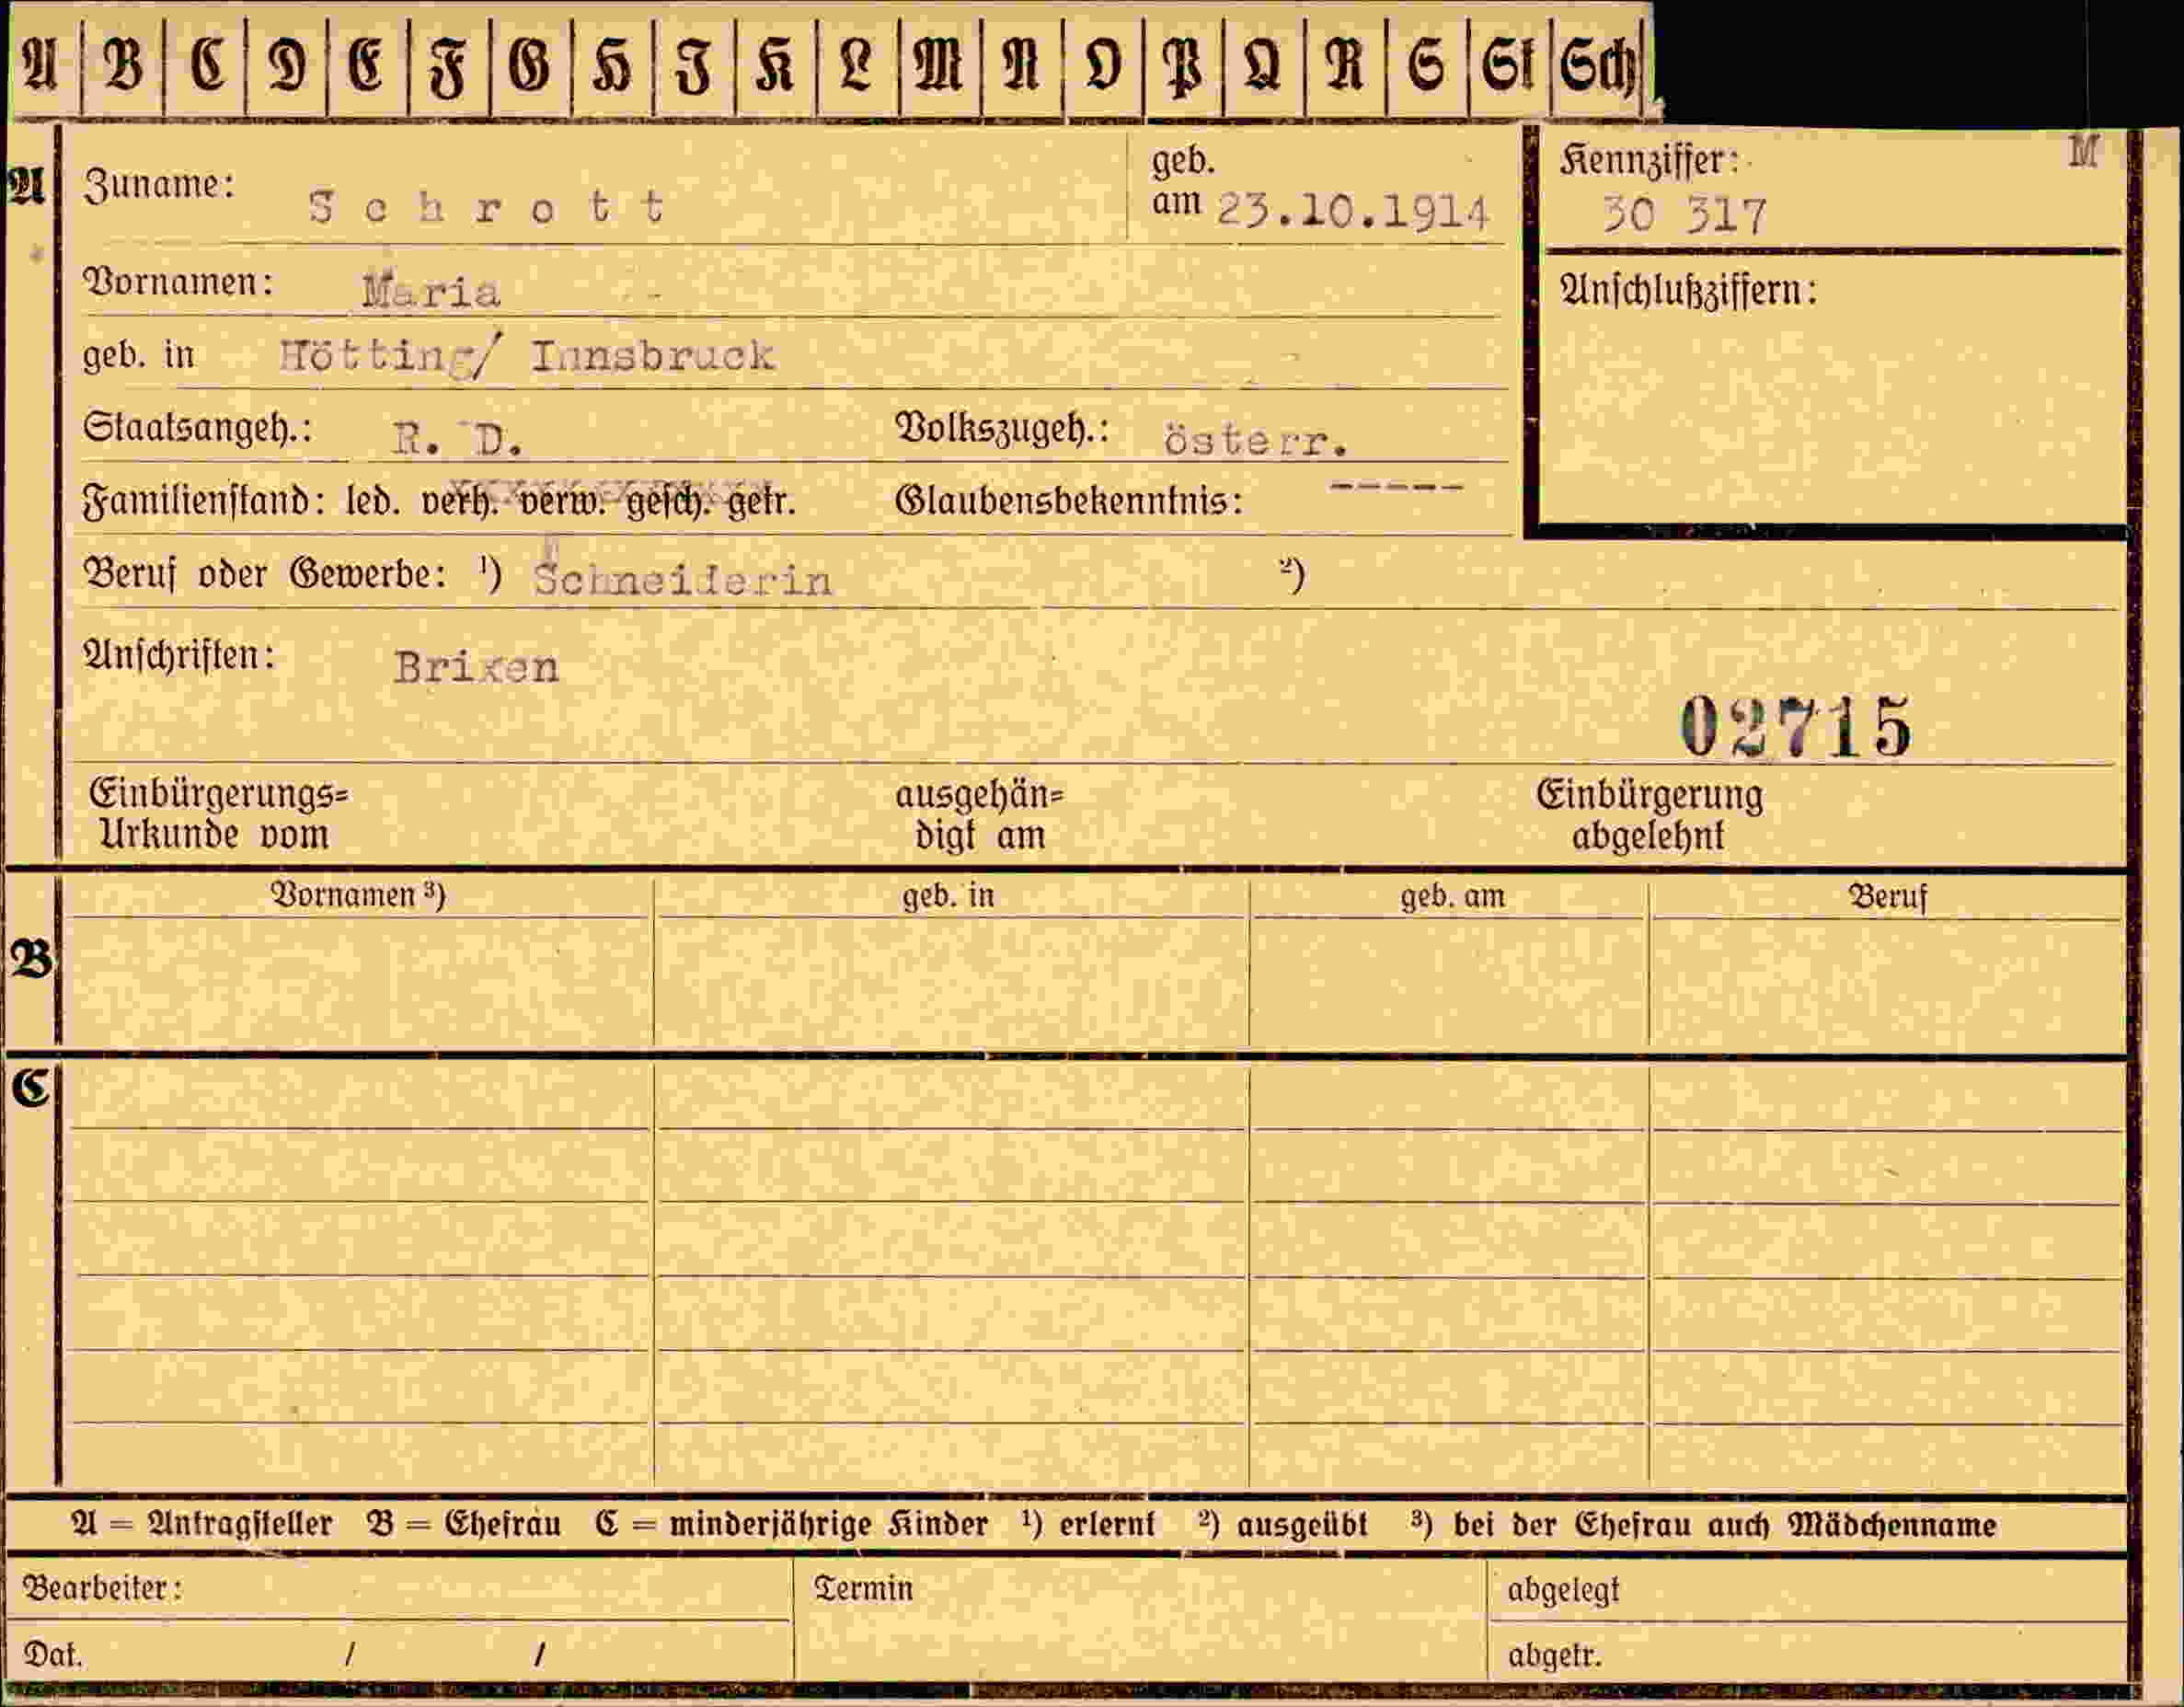 A B C D E F G H J K L M N O P Q R S St Sch
A Zuname: Schrott geb. am 23.10.1914 Kennziffer: 30 317 M
Vornamen: Maria Anschlußziffern:
geb. in Hötting/ Innsbruck
Staatsangeh.: R. D. Volkszugeh.: österr.
Familienstand: led. verh. verw. gesch. getr. Glaubensbekenntnis: -----
Beruf oder Gewerbe: ¹) Schneiderin ²)
Anschriften: Brixen
02715
Einbürgerungs= ausgehän= Einbürgerung
Urkunde vom digt am abgelehnt
Vornamen ³) geb. in geb. am Beruf
B
C
A = Antragsteller B = Ehefrau C = minderjährige Kinder ¹) erlernt ²) ausgeübt ³) bei der Ehefrau auch Mädchenname
Bearbeiter: Termin abgelegt
Dat. / / abgetr.